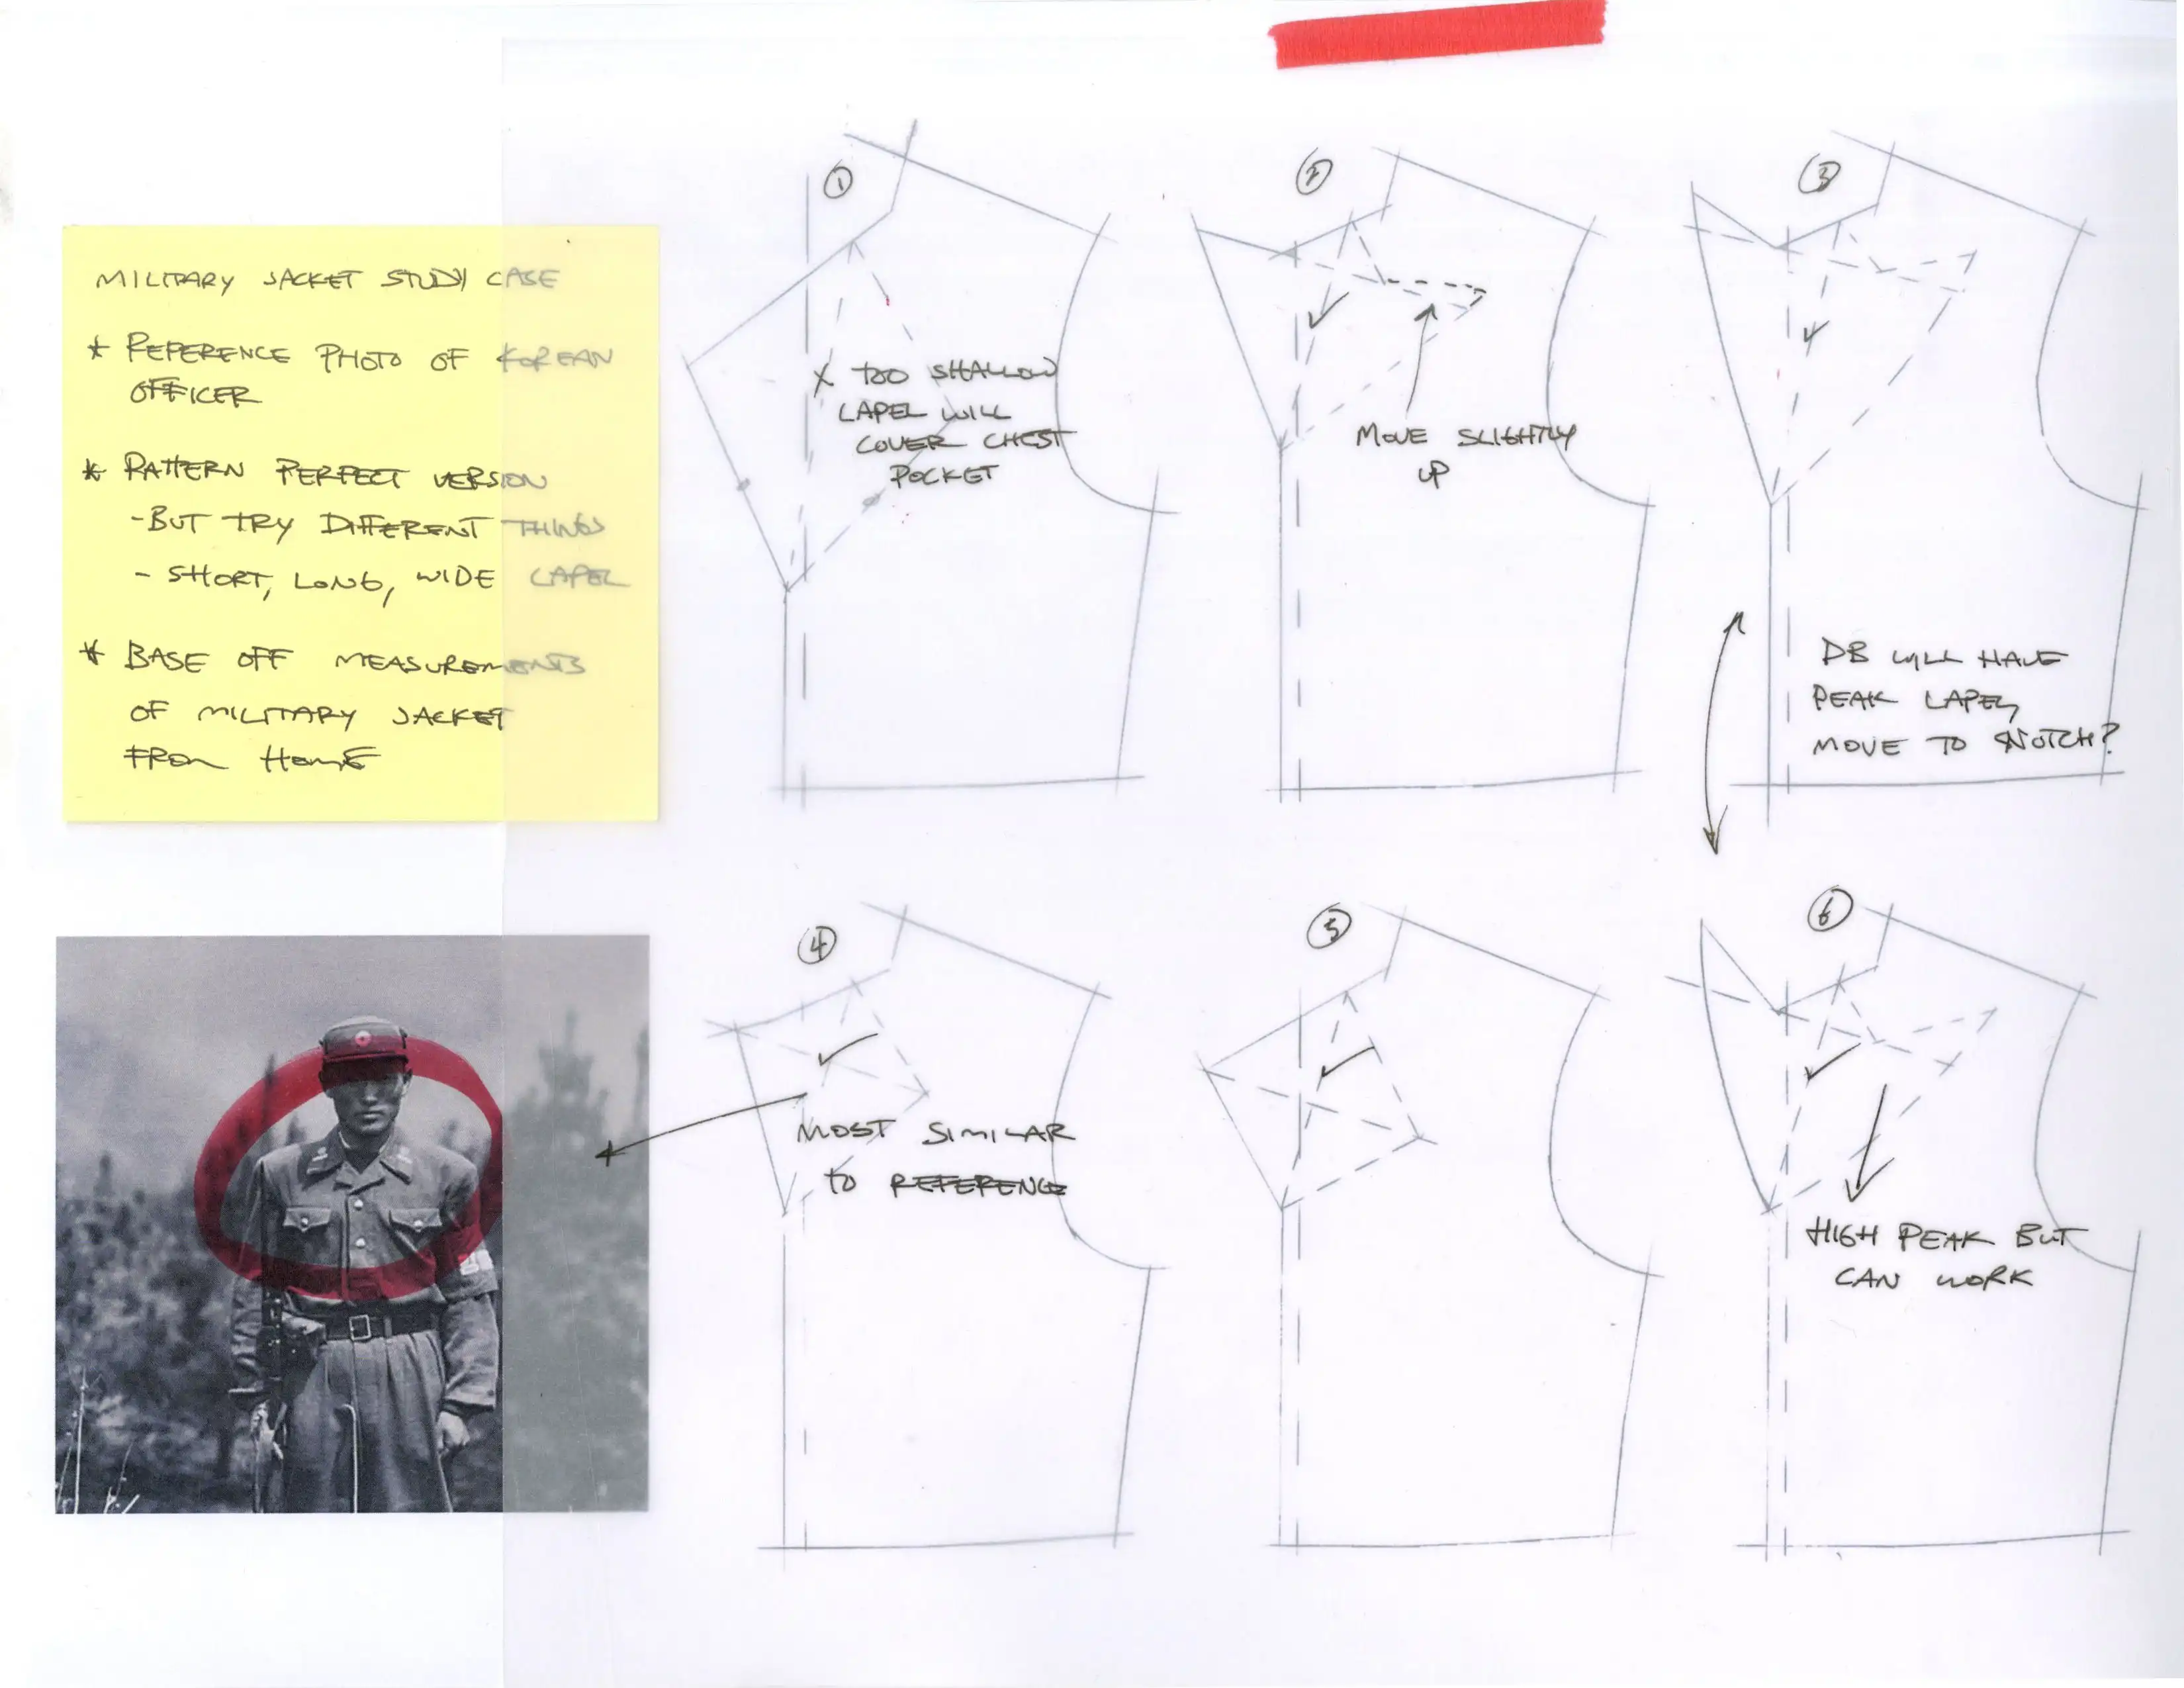 MILITARY JACKET STUDY CASE
* REFERENCE PHOTO OF KOREAN
OFFICER
* PATTERN PERFECT VERSION
-BUT TRY DIFFERENT THINGS
- SHORT, LONG, WIDE LAPEL
* BASE OFF MEASUREMENTS
OF MILITARY JACKET
FROM HOME
1
X TOO SHALLOW
LAPEL WILL
COVER CHEST
POCKET
2
MOVE SLIGHTLY
UP
3
DB WILL HAVE
PEAK LAPEL,
MOVE TO NOTCH?
4
MOST SIMILAR
TO REFERENCE
5
6
HIGH PEAK BUT
CAN WORK